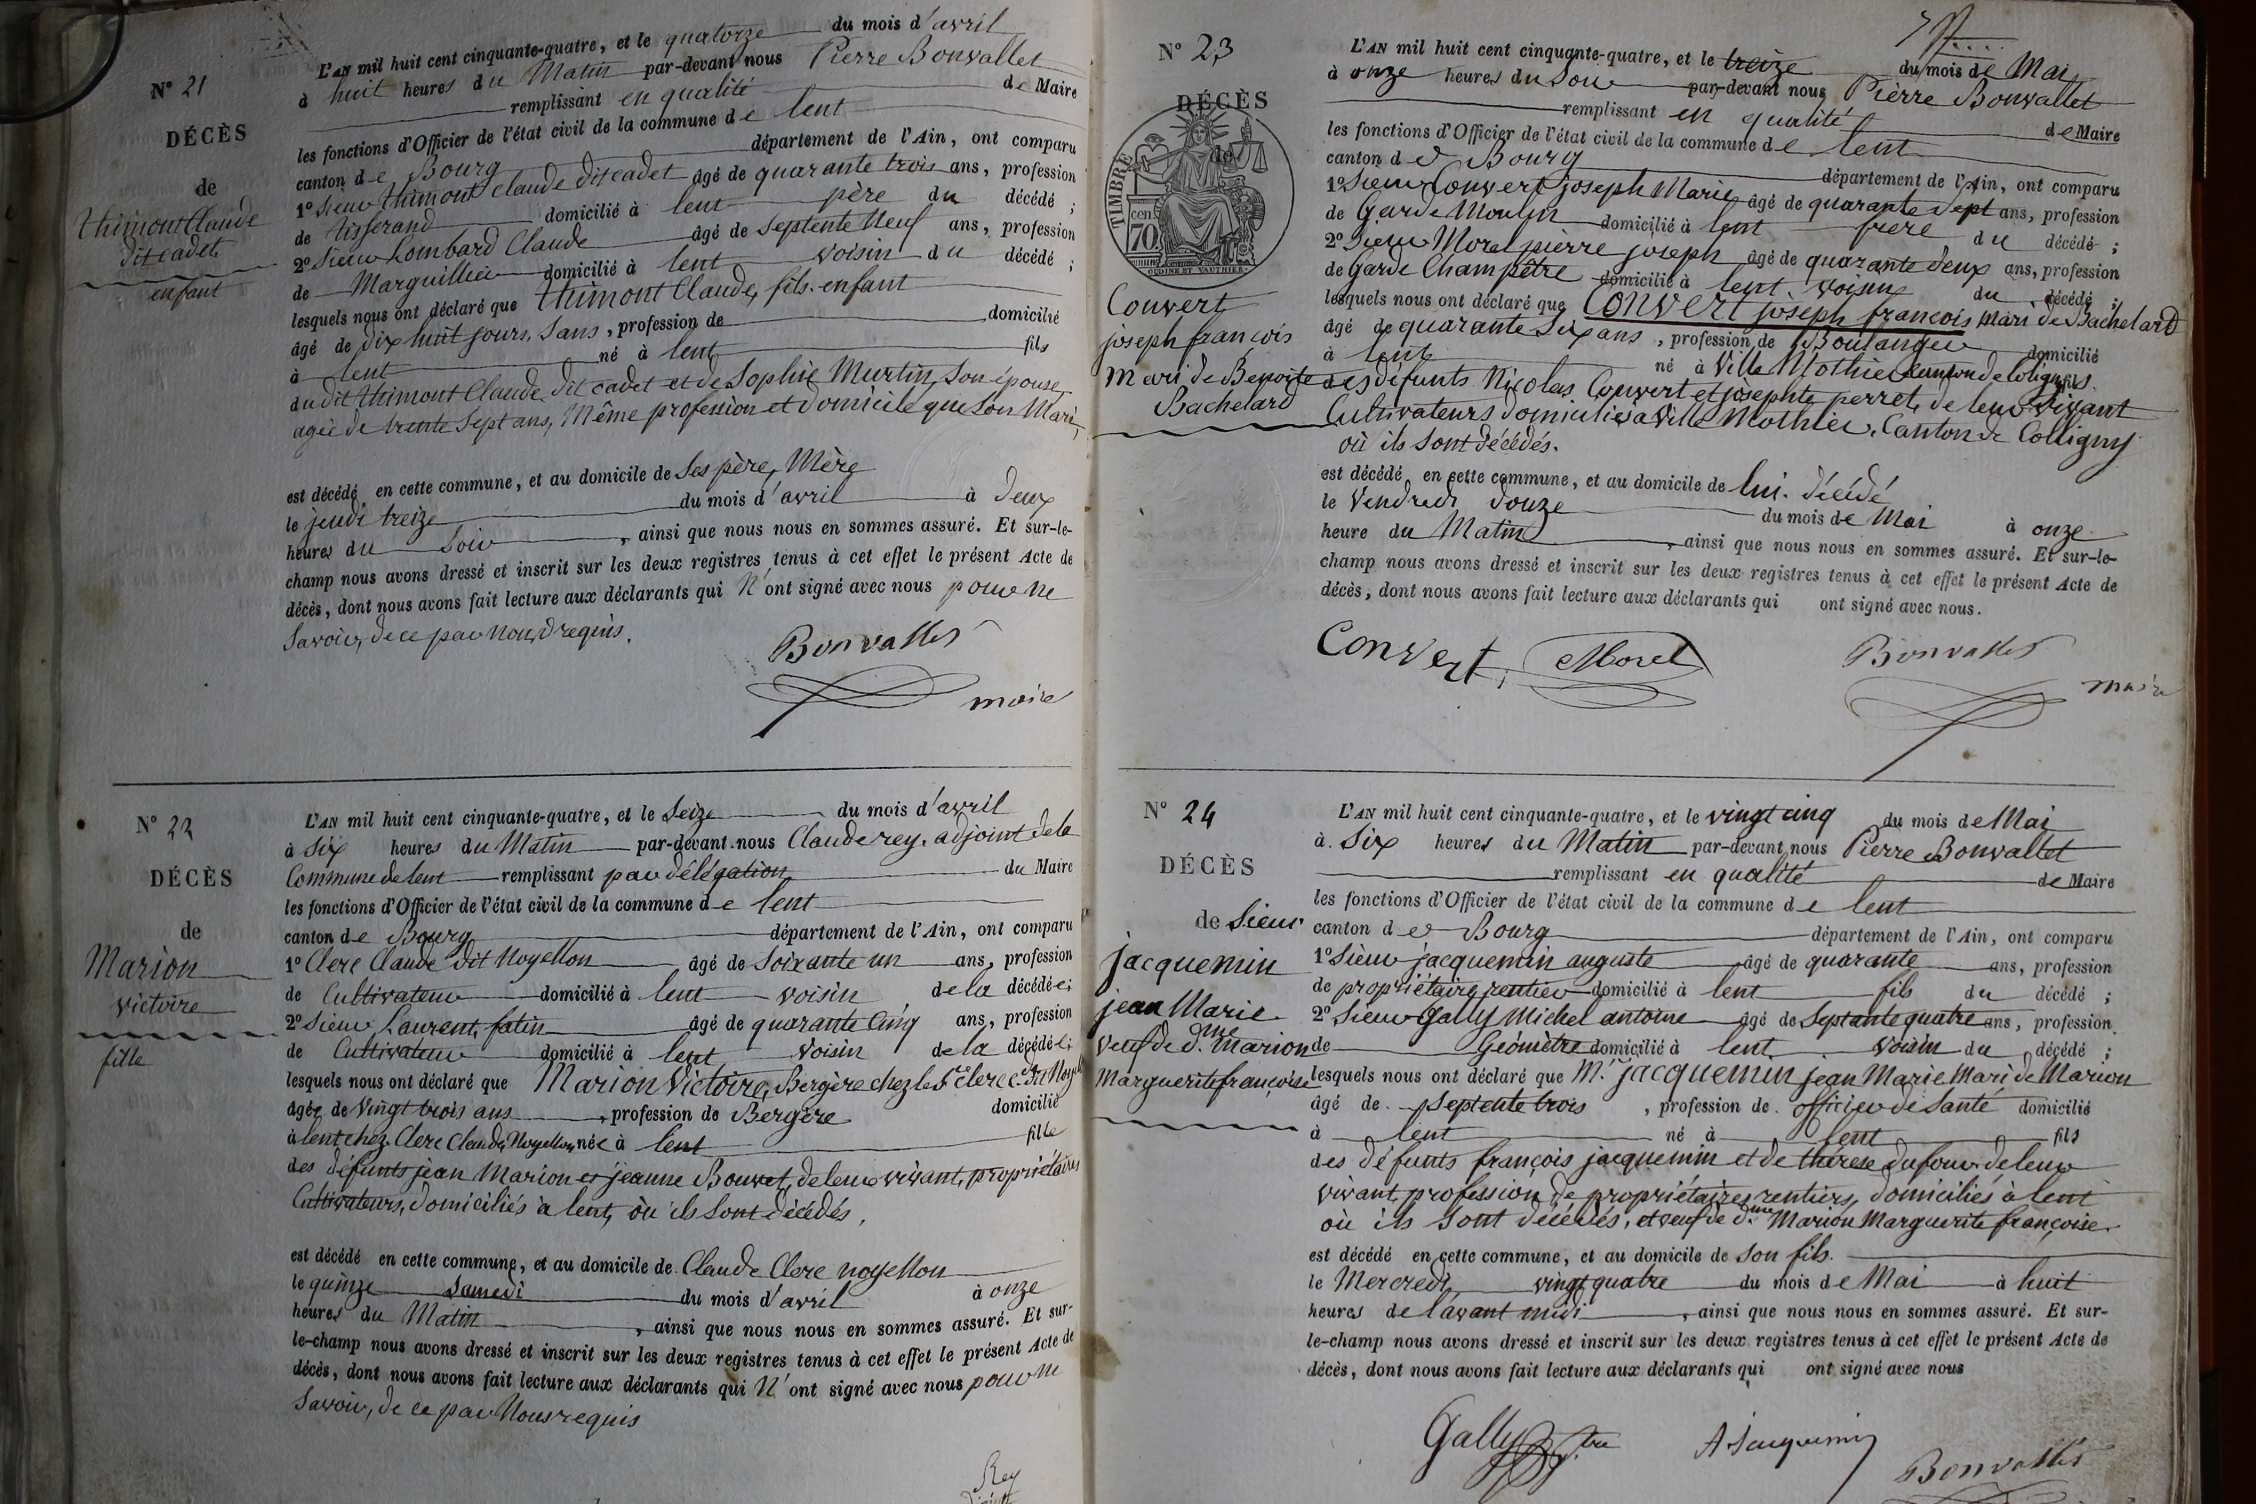 N° 21
DÉCÈS
de
thimont Claude
dit cadet
enfant
L'AN mil huit cent cinquante-quatre, et le quatorze du mois d'avril
à huit heures du Matin par-devant nous Pierre Bonvallet
remplissant en qualité de Maire
les fonctions d'Officier de l'état civil de la commune de lent
canton de Bourg département de l'Ain, ont comparu
1° Sieur thimont Claude dit cadet âgé de quarante trois ans, profession
de tisserand domicilié à lent père du décédé ;
2° Sieur Lombard Claude âgé de Septente Neuf ans, profession
de Marguillier domicilié à lent voisin du décédé ;
lesquels nous ont déclaré que thimont Claude, fils enfant
âgé de dix huit jours, Sans, profession de domicilié
à lent né à lent fils
du dit thimont Claude dit cadet et de Sophie Murtin, Son épouse
agée de trente Sept ans, Même profession et domicile que Son Mari,
est décédé en cette commune, et au domicile de Ses père, Mère
le jeudi treize du mois d'avril à deux
heures du Soir, ainsi que nous nous en sommes assuré. Et sur-le-
champ nous avons dressé et inscrit sur les deux registres tenus à cet effet le présent Acte de
décès, dont nous avons fait lecture aux déclarants qui N'ont signé avec nous pour ne
Savoir, de ce par Nous, requis.
Bonvallet
maire
N° 22
DÉCÈS
de
Marion
victoire
fille
L'AN mil huit cent cinquante-quatre, et le Seize du mois d'avril
à Six heures du Matin par-devant nous Claude rey, adjoint de la
Commune de lent remplissant par délégation du Maire
les fonctions d'Officier de l'état civil de la commune de lent
canton de Bourg département de l'Ain, ont comparu
1° Clerc Claude dit Noyellon âgé de Soixante un ans, profession
de Cultivateur domicilié à lent voisin de la décédée ;
2° Sieur Laurent, fatin âgé de quarante Cinq ans, profession
de Cultivateur domicilié à lent voisin de la décédée ;
lesquels nous ont déclaré que Marion Victoire, Bergère chez le Sr clerc
âgée de Vingt trois ans, profession de Bergère domicilié
à lent chez Clerc Claude, Noyellon, née à lent fille
des défunts jean Marion et jeanne Bouvet, de leur vivant, propriétaires
Cultivateurs, domiciliés à lent, où ils Sont décédés,
est décédé en cette commune, et au domicile de Claude Clerc noyellon
le quinze Samedi du mois d'avril à onze
heures du Matin, ainsi que nous nous en sommes assuré. Et sur-
le-champ nous avons dressé et inscrit sur les deux registres tenus à cet effet le présent Acte de
décès, dont nous avons fait lecture aux déclarants qui N'ont signé avec nous pour ne
Savoir, de ce par Nous requis
Rey
N° 23
DÉCÈS
de
TIMBRE
cen
70
OUDINE ET VAUTHIER
Convert
joseph françois
mari de Benoite
Bachelard
L'AN mil huit cent cinquante-quatre, et le treize du mois de Mai
à onze heures du Soir par-devant nous Pierre Bonvallet
remplissant en qualité de Maire
les fonctions d'Officier de l'état civil de la commune de lent
canton de Bourg département de l'Ain, ont comparu
1° Sieur Convert joseph Marie âgé de quarante Sept ans, profession
de Garde Moulin domicilié à lent frere du décédé ;
2° Sieur Morel pierre joseph âgé de quarante deux ans, profession
de Garde Champêtre domicilié à lent voisin du décédé ;
lesquels nous ont déclaré que Convert joseph françois mari de Bachelard
âgé de quarante Six ans, profession de Boulanger domicilié
à lent né à Ville Mothier Canton de Coligny fils
des défunts Nicolas Convert et josephte perret, de leur vivant
Cultivateurs domiciliés a Ville Mothier, Canton de Colligny
où ils Sont décédés.
est décédé en cette commune, et au domicile de lui. décédé
le Vendredi douze du mois de Mai à onze
heure du Matin, ainsi que nous nous en sommes assuré. Et sur-le-
champ nous avons dressé et inscrit sur les deux registres tenus à cet effet le présent Acte de
décès, dont nous avons fait lecture aux déclarants qui ont signé avec nous.
Convert Morel Bonvallet
maire
N° 24
DÉCÈS
de Sieur
jacquemin
jean Marie
veuf de dme Marion
Marguerite françoise
L'AN mil huit cent cinquante-quatre, et le vingt cinq du mois de Mai
à Six heures du Matin par-devant nous Pierre Bonvallet
remplissant en qualité de Maire
les fonctions d'Officier de l'état civil de la commune de lent
canton de Bourg département de l'Ain, ont comparu
1° Sieur jacquemin auguste âgé de quarante ans, profession
de propriétaire rentier domicilié à lent fils du décédé ;
2° Sieur Gally Michel antoine âgé de Septante quatre ans, profession
de Géomètre domicilié à lent voisin du décédé ;
lesquels nous ont déclaré que Mr jacquemin jean Marie Mari de Marion
âgé de Septente trois, profession de officier de Santé domicilié
à lent né à lent fils
des défunts françois jacquemin et de thérese dufour de leur
vivant, profession de propriétaires rentiers, domiciliés à lent
où ils Sont décédés, et veuf de dme Marion Marguerite françoise.
est décédé en cette commune, et au domicile de Son fils.
le Mercredi vingt quatre du mois de Mai à huit
heures de l'avant midi, ainsi que nous nous en sommes assuré. Et sur-
le-champ nous avons dressé et inscrit sur les deux registres tenus à cet effet le présent Acte de
décès, dont nous avons fait lecture aux déclarants qui ont signé avec nous
Gally A Jacquemin
Bonvallet